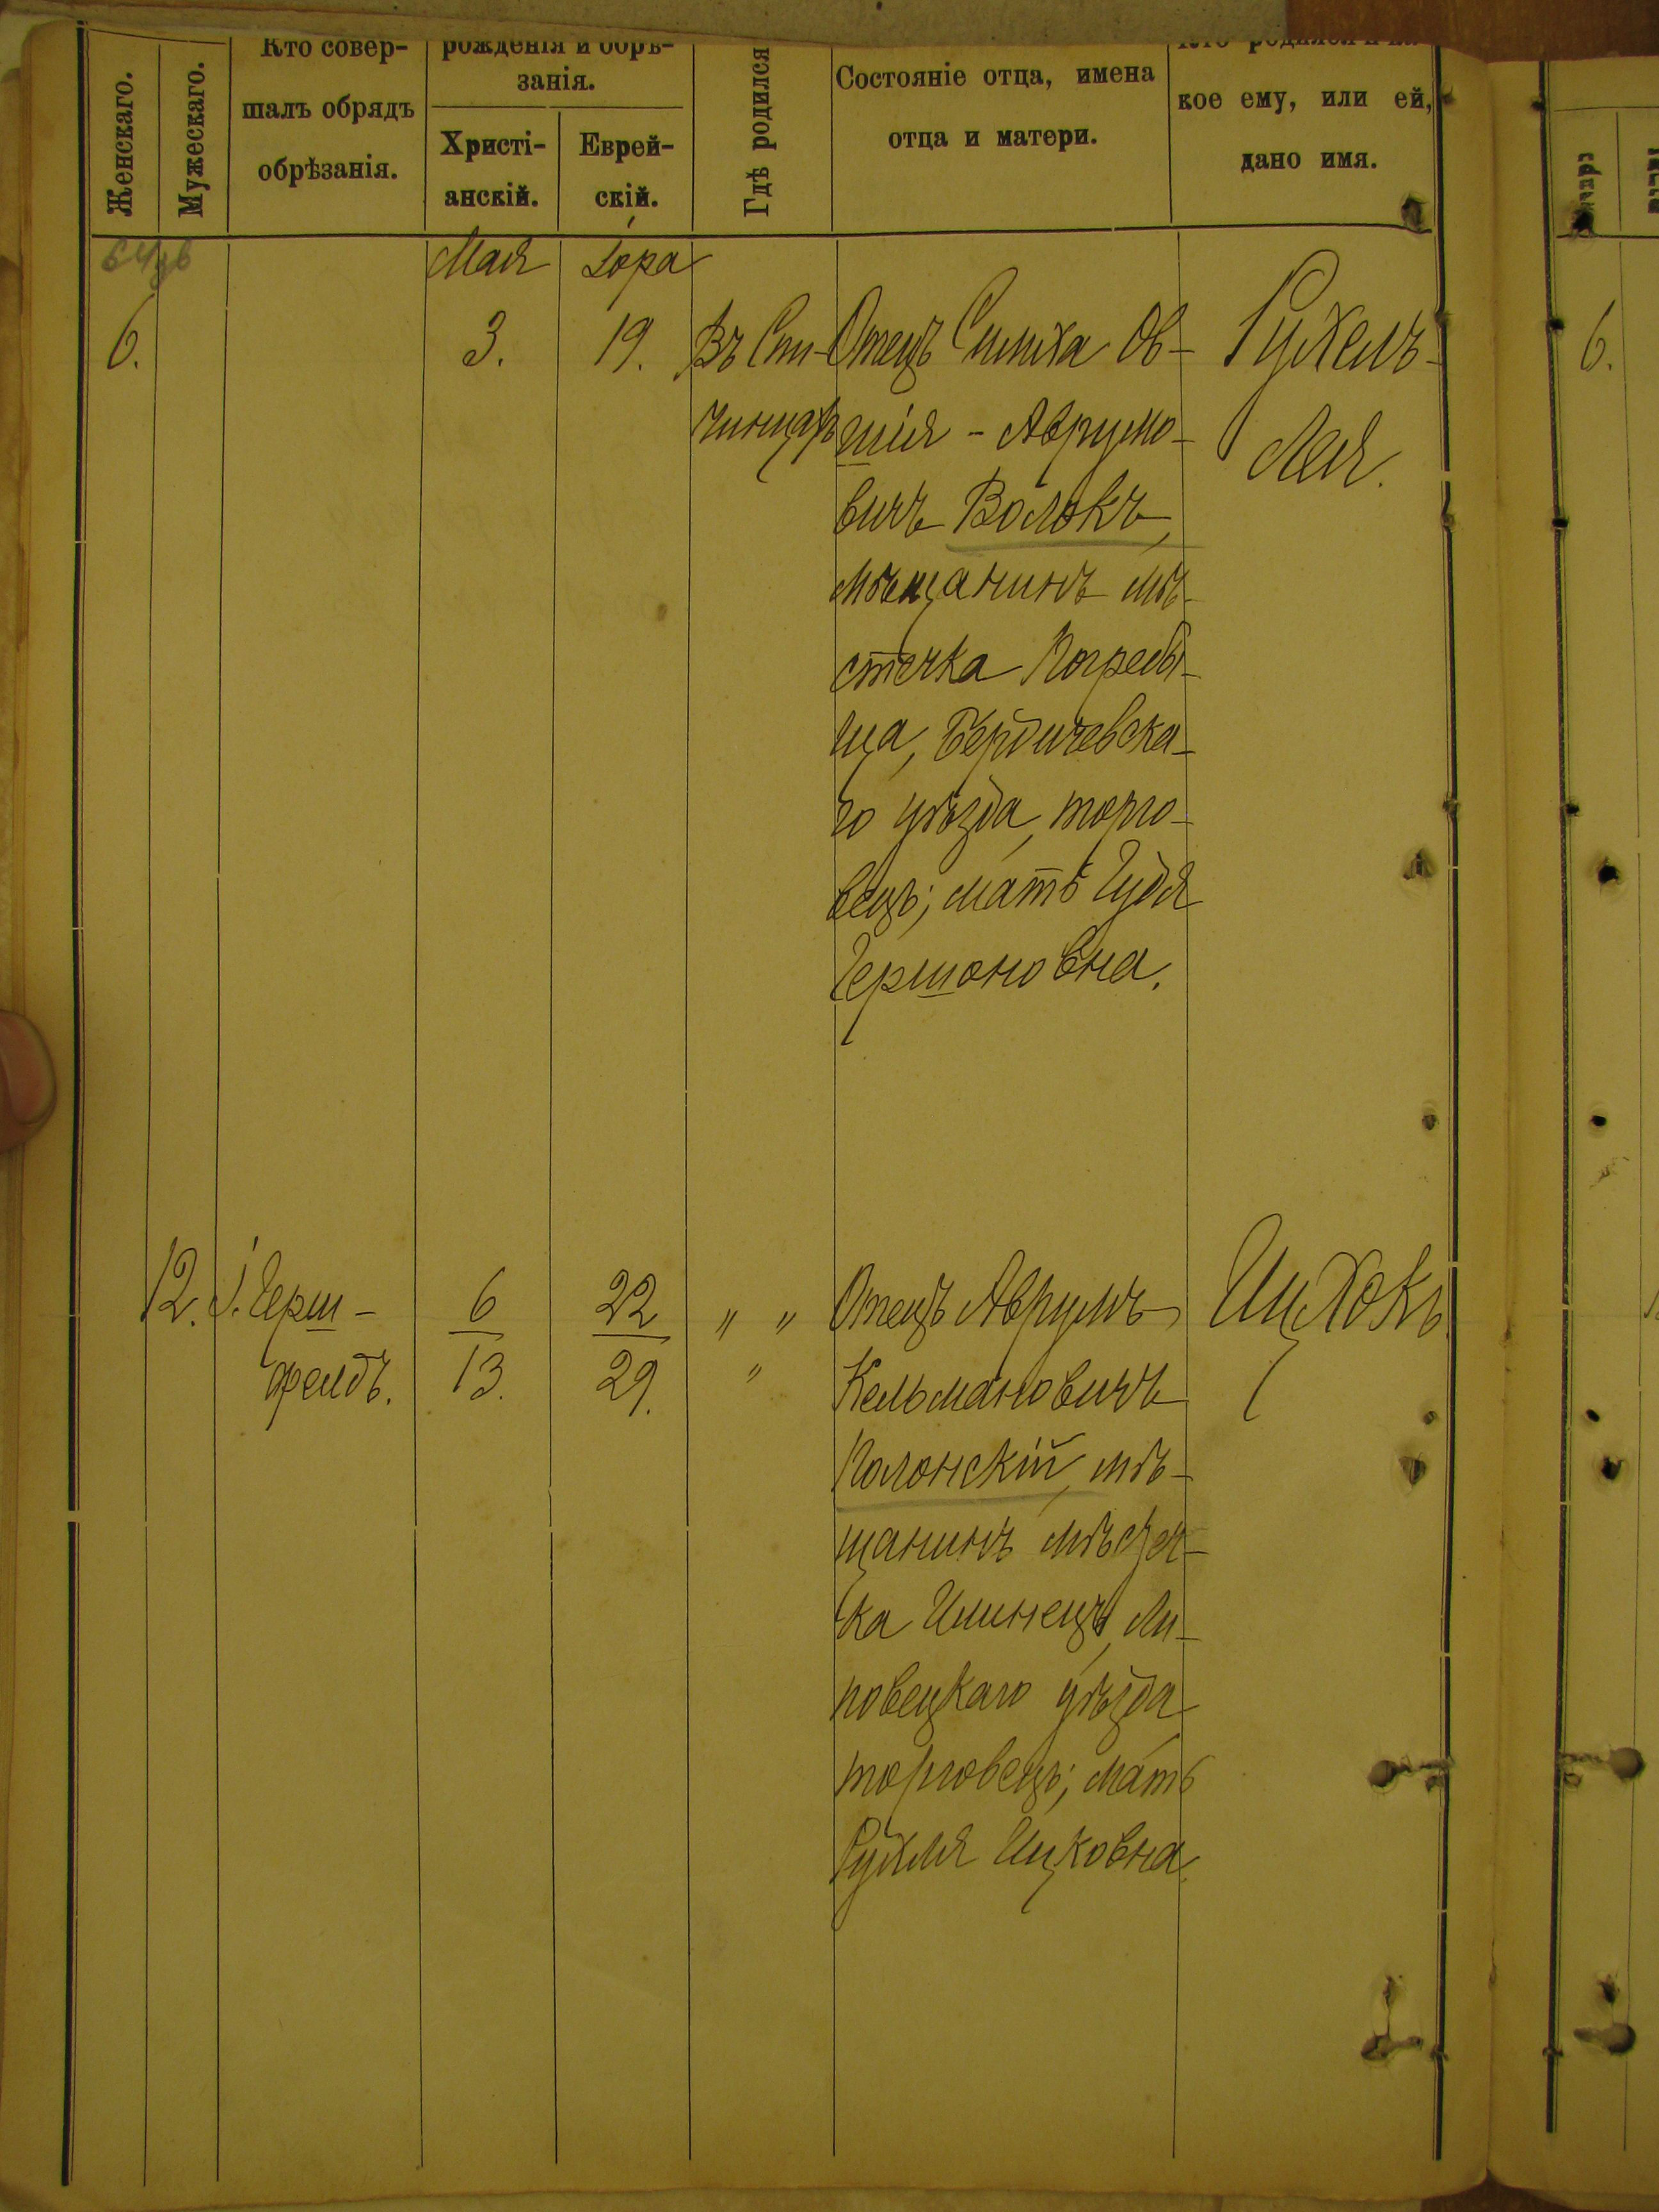 Женскаго.
Мужескаго.
Кто совер-
шалъ обрядъ
обрѣзанія.
рожденія и обрѣ-
занія.
Христі-
анскій.
Еврей-
скій.
Гдѣ родился
Состояніе отца, имена
отца и матери.
кое ему, или ей,
дано имя.
Мая
Іора
6.
3.
19.
Въ Спи-
чинцахъ
Отецъ Симха Ов-
шія - Аврумо-
вичъ Волокъ,
мѣщанинъ мѣ-
стечка Погребы-
ща, Бердичевска-
го уѣзда, торго-
вецъ; мать Гудя
Гершоновна.
Рухель-
Лея.
6.
12.
І. Герш-
фелдъ.
6
13.
22
29.
" "
"
Отецъ Аврумъ
Кельмановичъ
Полонскій, мѣ-
щанинъ мѣстеч-
ка Илинецъ, Ли-
повецкаго уѣзда
торговецъ; мать
Рухля Ицковна.
Ицхокъ